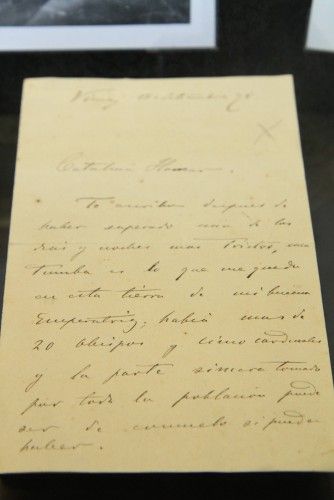 Catalina Homar.
Te escribo despues de
haber superado uno de los
dias y noches mas tristes, una
tumba es lo que me queda
en esta tierra de mi buena
Emperatriz; había mas de
20 Obispos y cinco cardenales
y la parte sincera tomada
por toda la población puede
ser de consuelo si puede
haber.